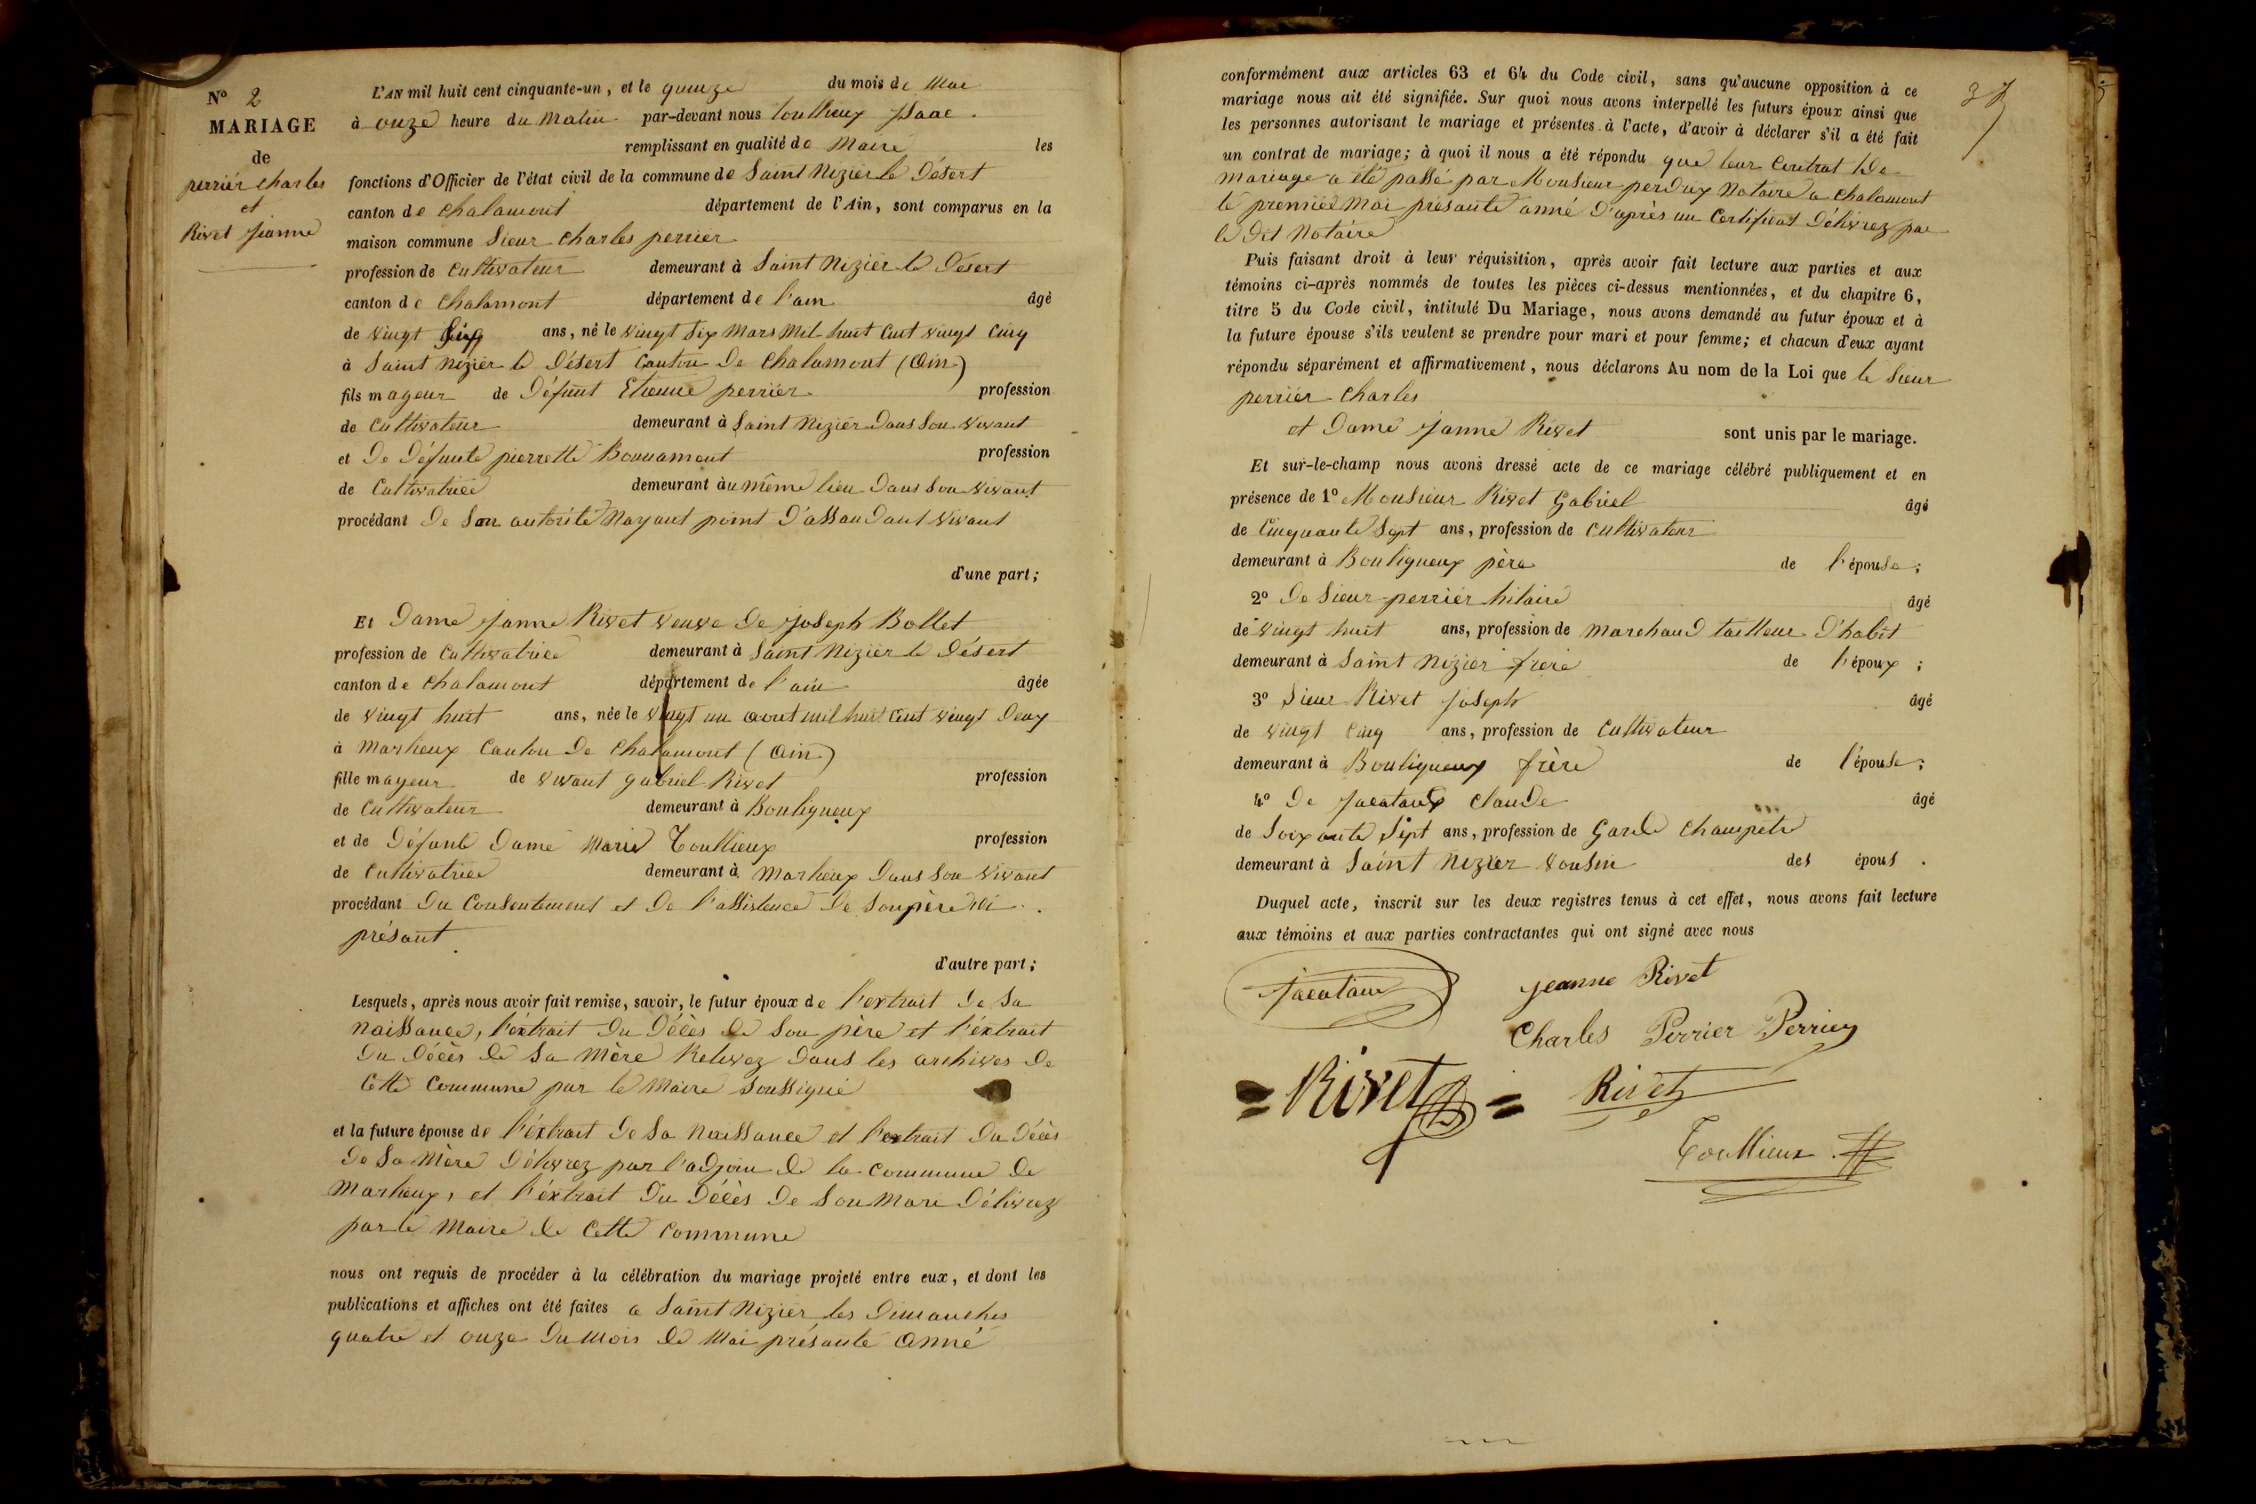 N° 2
MARIAGE
de
perriér charles
et
Rivet Jeanne
L'AN mil huit cent cinquante-un, et le quinze du mois de Mai
à onze heure du Matin par-devant nous toullieux Isaac
remplissant en qualité de Maire les
fonctions d'Officier de l'état civil de la commune de Saint Nizier le Désert
canton de chalamont département de l'Ain, sont comparus en la
maison commune Sieur charles perrier
profession de cultivateur demeurant à Saint Nizier le Désert
canton de chalamont département de l'ain âgé
de vingt Six ans, né le vingt Six Mars Mil huit Cent vingt Cinq
à Saint Nizier le Désert Canton De Chalamont (Ain)
fils mageur de Défunt Etienne perriér profession
de cultivateur demeurant à Saint Nizier Dans Son vivant
et De Défunte pierrette Bonnamont profession
de Cultivatrice demeurant au même lieu Dans Son vivant
procédant De Son autorité Nayant point D'assandant vivant
d'une part;
Et Dame Janne Rivet veuve De Joseph Bollet
profession de Cultivatrice demeurant à Saint Nizier le Désert
canton de chalamont département de l'ain âgée
de vingt huit ans, née le vingt un aout mil huit Cent vingt Deux
à Marlieux Canton De Chalamont (Ain)
fille mayeur de vivant gabriel Rivet profession
de Cultivateur demeurant à Bouligneux
et de Défunte Dame Marie Toullieux profession
de Cultivatrice demeurant à Marlieux Dans Son vivant
procédant Du Consentement et De l'assistence De Son père ici
présant
d'autre part;
Lesquels, après nous avoir fait remise, savoir, le futur époux de l'extrait De Sa
naissance, l'éxtrait Du Décès De Son père et l'éxtrait
Du Décès De Sa Mère Relevez Dans les archives De
Cette Commune par le Maire Soussigné
et la future épouse de l'éxtrait De Sa Naissance et l'extrait Du Décès
De Sa Mère Délivrez par l'adjoin De la Commune De
Marlieux, et l'éxtrait Du Décès De Son Mari Délivrez
par le Maire De Cette Commune
nous ont requis de procéder à la célébration du mariage projeté entre eux, et dont les
publications et affiches ont été faites a Saint Nizier les Dimanches
quatre et onze Du Mois De Mai présante Anné
37
conformément aux articles 63 et 64 du Code civil, sans qu'aucune opposition à ce
mariage nous ait été signifiée. Sur quoi nous avons interpellé les futurs époux ainsi que
les personnes autorisant le mariage et présentes à l'acte, d'avoir à déclarer s'il a été fait
un contrat de mariage; à quoi il nous a été répondu que leur Contrat De
mariage a été passé par Monsieur perdux Notaire a chalamont
le premiée Mai présante anné D'après un Certificat Délivrez par
le Dit Notaire
Puis faisant droit à leur réquisition, après avoir fait lecture aux parties et aux
témoins ci-après nommés de toutes les pièces ci-dessus mentionnées, et du chapitre 6,
titre 5 du Code civil, intitulé Du Mariage, nous avons demandé au futur époux et à
la future épouse s'ils veulent se prendre pour mari et pour femme; et chacun d'eux ayant
répondu séparément et affirmativement, nous déclarons Au nom de la Loi que le Sieur
perriér Charles
et Dame Janne Rivet sont unis par le mariage.
Et sur-le-champ nous avons dressé acte de ce mariage célébré publiquement et en
présence de 1° Monsieur Rivet Gabriel âgé
de Cinquante Sept ans, profession de Cultivateur
demeurant à Bouligneux père de l'épouse;
2° De Sieur perriér hilaire âgé
de vingt huit ans, profession de Marchand tailleur D'habit
demeurant à Saint Nizier frere de l'époux;
3° Sieur Rivet Joseph âgé
de vingt Cinq ans, profession de Cultivateur
demeurant à Bouligneux frère de l'épouse;
4° De Jacataux claude âgé
de Soixante Sept ans, profession de Garde Champetre
demeurant à Saint Nizier vousin des épous.
Duquel acte, inscrit sur les deux registres tenus à cet effet, nous avons fait lecture
aux témoins et aux parties contractantes qui ont signé avec nous
Jacataux Jeanne Rivet
Charles Perrier Perrier
Rivet Rivet
Toullieux